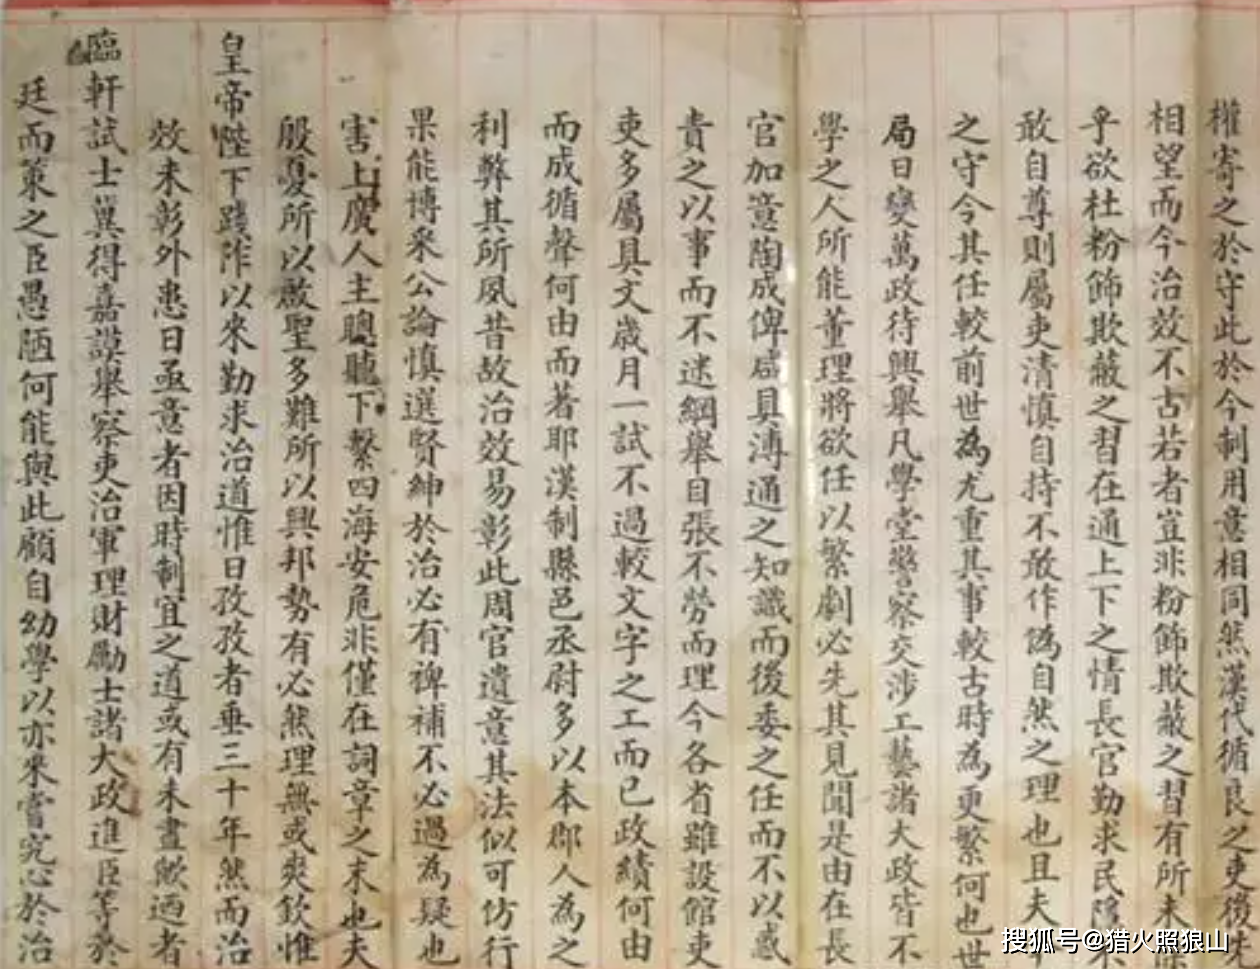 權寄之於守此於今制用意相同然漢代循良之吏後
相望而今治效不古若者豈非粉飾欺蔽之習有所未
乎欲杜粉飾欺蔽之習在通上下之情長官勤求民隱不
敢自尊則屬吏清慎自持不敢作偽自然之理也且夫
之守令其任較前世為尤重其事較古時為更繁何也世
局日變萬政待興舉凡學堂警察交涉工藝諸大政皆不
學之人所能董理將欲任以繁劇必先其見聞是由在長
官加意陶成俾咸具溥通之知識而後委之任而不以惑
責之以事而不迷綱舉目張不勞而理今各省雖設館吏
吏多屬具文歲月一試不過較文字之工而已政績何由
而成循聲何由而著耶漢制縣邑丞尉多以本郡人為之
利弊其所夙昔故治效易彰此周官遺意其法似可仿行
果能博采公論慎選賢紳於治必有裨補不必過為疑也
害上廣人主聰聽下繫四海安危非僅在詞章之末也夫
殷憂所以啟聖多難所以興邦勢有必然理無或爽欽惟
皇帝陛下踐阼以來勤求治道惟日孜孜者垂三十年然而治
效未彰外患日亟意者因時制宜之道或有未盡歟迺者
臨軒試士冀得嘉謨舉察吏治軍理財勵士諸大政進臣等於
廷而策之臣愚陋何能與此顧自幼學以亦來嘗究心於治
搜狐号@猎火照狼山